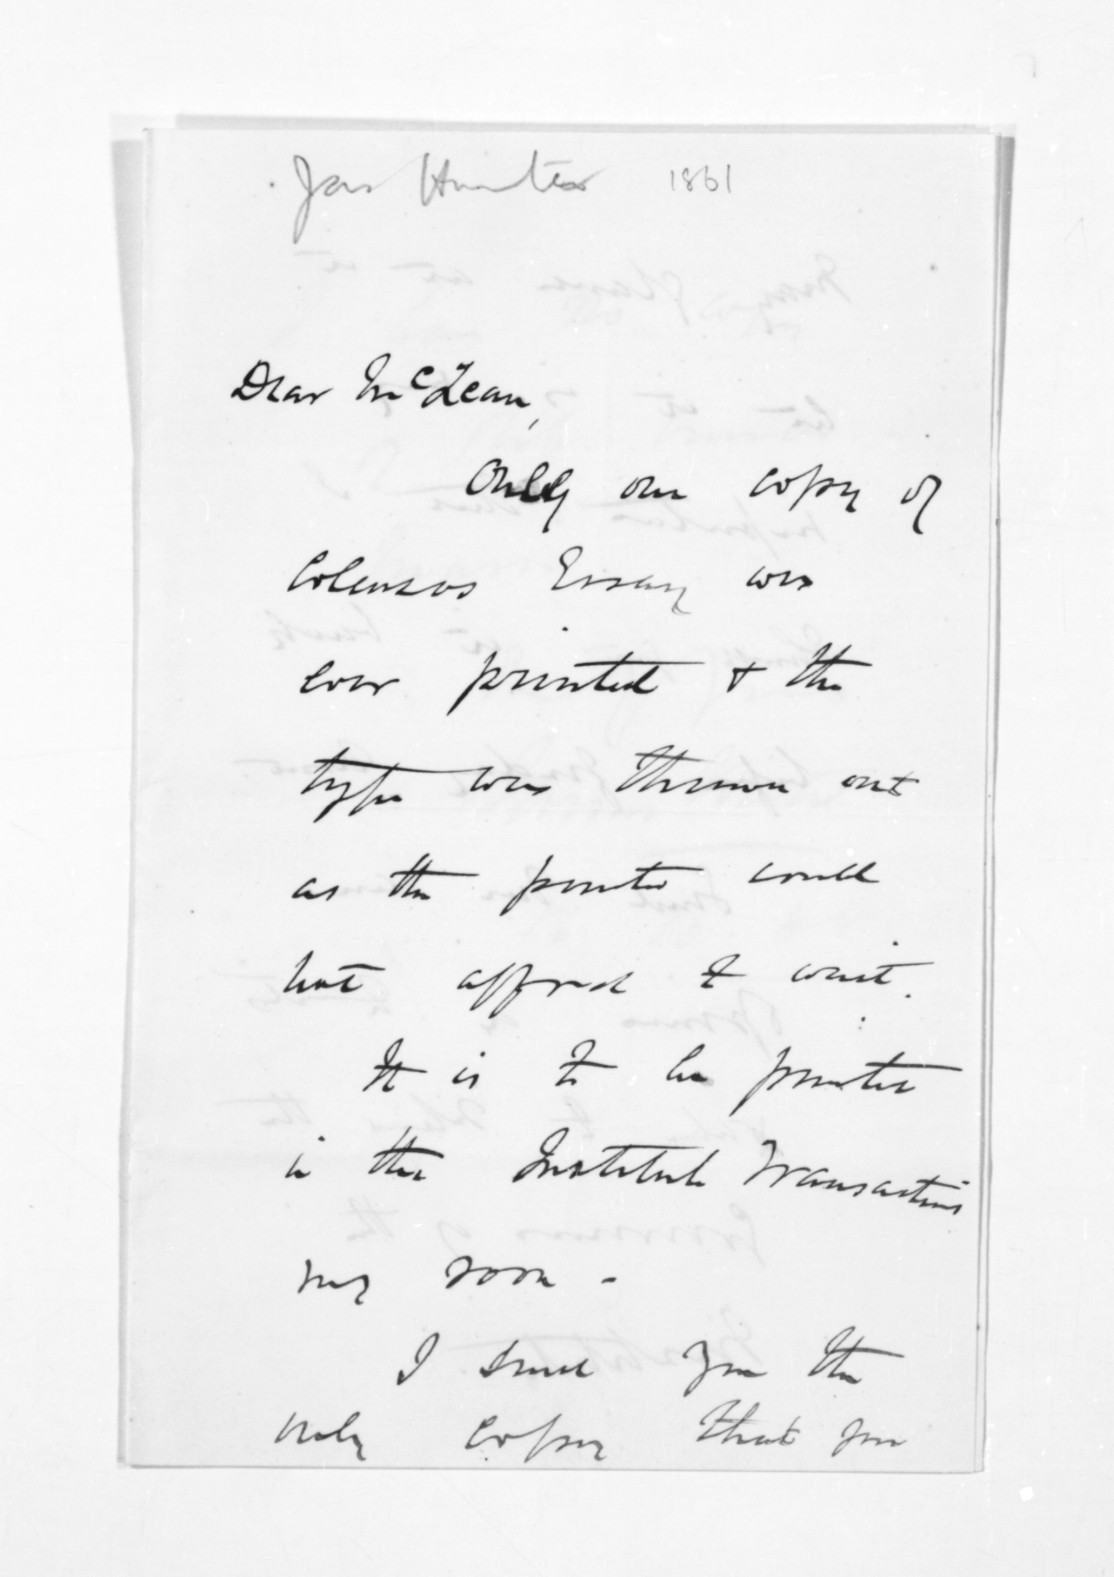 Jas Hunter 1861
Dear McLean,
Only one copy of
Colensos Essay was
ever printed & the
type was thrown out
as the printer could
not afford to wait.
It is to be printed
in the Institute Transactions
very soon -
I send you the
only copy that you